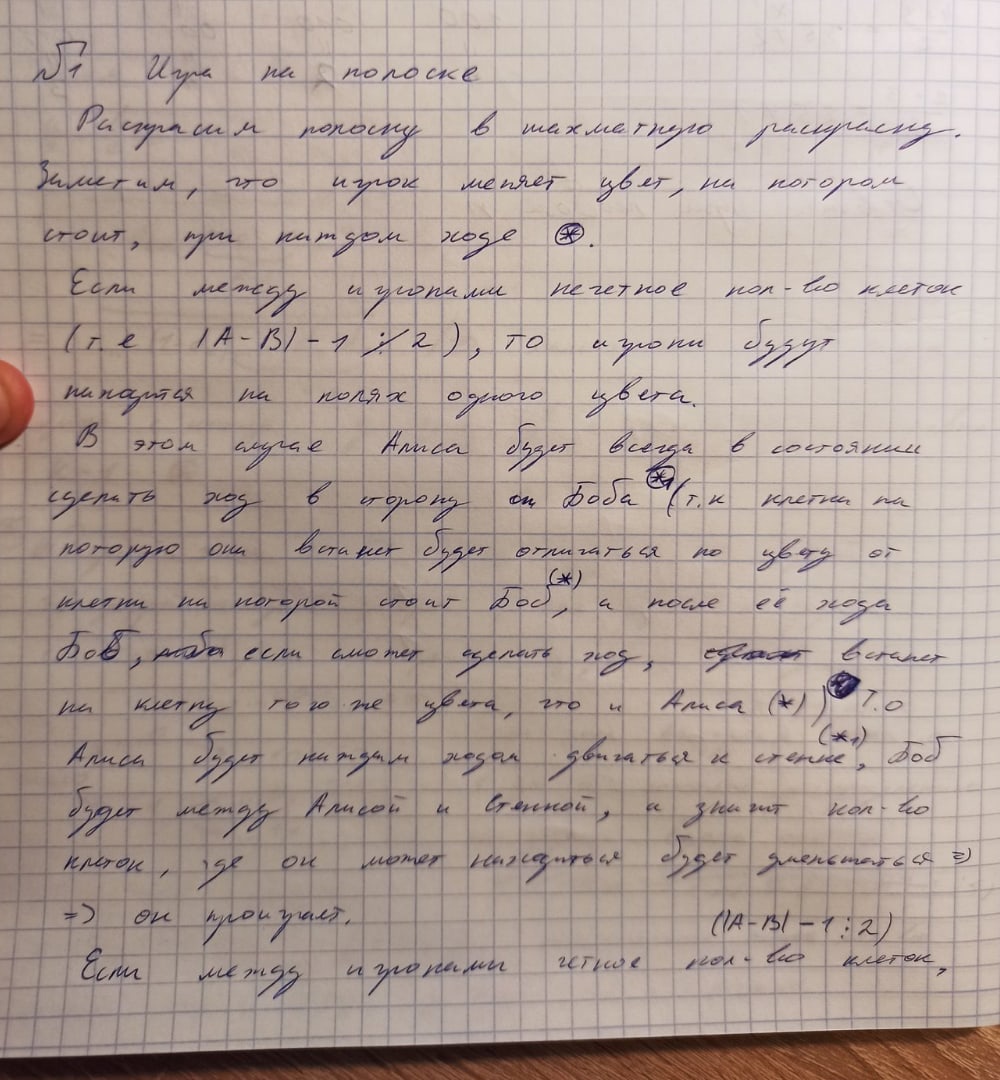 №1 Игра на полоске
Раскрасим полоску в шахматную раскраску.
Заметим, что игрок меняет цвет, на котором
стоит, при каждом ходе (*).
Если между игроками нечетное кол-во клеток
(т.е |A-B|-1 ⋮̸ 2), то игроки будут
находится на полях одного цвета.
В этом случае Алиса будет всегда в состоянии
сделать ход в сторону Боба (*1) (т.к клетка на
которую она встанет будет отличаться по цвету от
клетки на которой стоит Боб (*), а после её хода
Боб, если сможет сделать ход, встанет
на клетку того же цвета, что и Алиса (*)) Т.о
Алиса будет каждым ходом двигаться к стенке (*1), Боб
будет между Алисой и Стенкой, а значит кол-во
клеток, где он может находиться будет уменьшаться =>
=> он проиграет.
(|A-B|-1 ⋮ 2)
Если между игроками четное кол-во клеток,